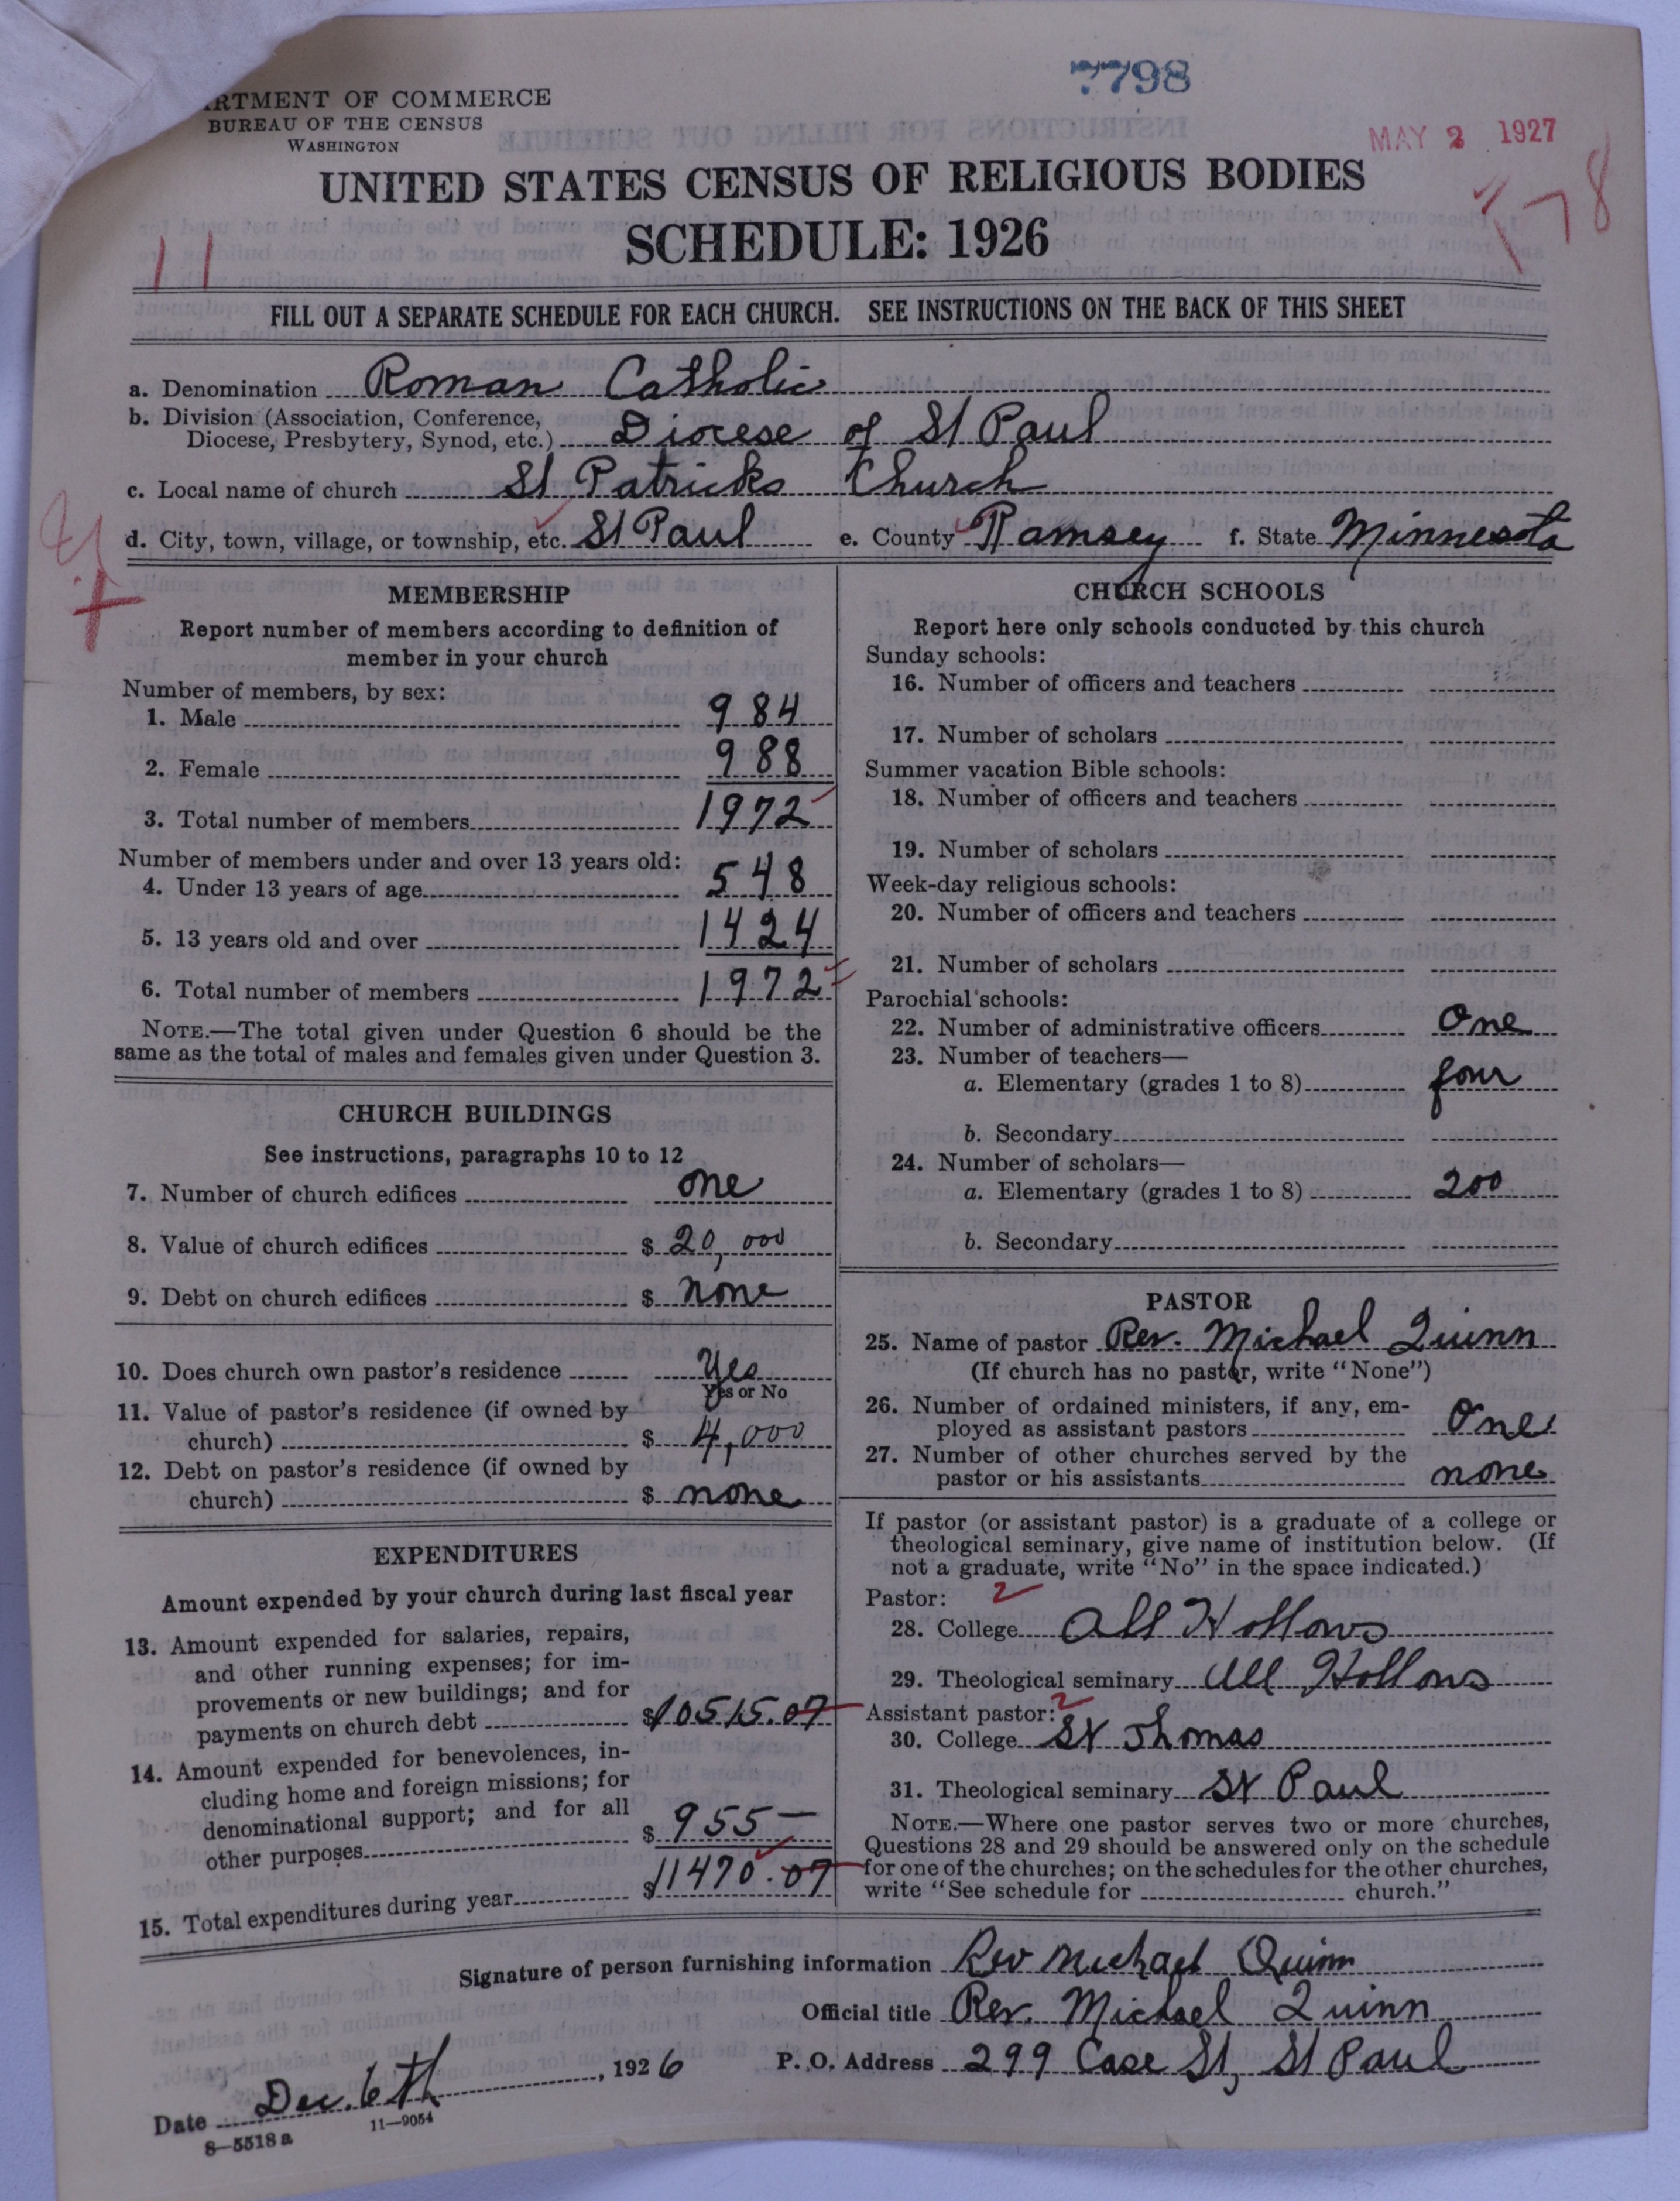 7798
RTMENT OF COMMERCE
BUREAU OF THE CENSUS
WASHINGTON
MAY 2 1927
UNITED STATES CENSUS OF RELIGIOUS BODIES
SCHEDULE: 1926
11
78
FILL OUT A SEPARATE SCHEDULE FOR EACH CHURCH. SEE INSTRUCTIONS ON THE BACK OF THIS SHEET
a. Denomination Roman Catholic
b. Division (Association, Conference,
Diocese, Presbytery, Synod, etc.) Diocese of St Paul
c. Local name of church St Patricks Church
d. City, town, village, or township, etc. St Paul e. County Ramsey f. State Minnesota
MEMBERSHIP
Report number of members according to definition of
member in your church
Number of members, by sex:
1. Male 984
2. Female 988
3. Total number of members 1972
Number of members under and over 13 years old:
4. Under 13 years of age 548
5. 13 years old and over 1424
6. Total number of members 1972
NOTE.—The total given under Question 6 should be the
same as the total of males and females given under Question 3.
CHURCH BUILDINGS
See instructions, paragraphs 10 to 12
7. Number of church edifices one
8. Value of church edifices $ 20,000
9. Debt on church edifices $ none
10. Does church own pastor's residence Yes
Yes or No
11. Value of pastor's residence (if owned by
church) $ 4,000
12. Debt on pastor's residence (if owned by
church) $ none
EXPENDITURES
Amount expended by your church during last fiscal year
13. Amount expended for salaries, repairs,
and other running expenses; for im-
provements or new buildings; and for
payments on church debt $10515.07
14. Amount expended for benevolences, in-
cluding home and foreign missions; for
denominational support; and for all
other purposes $ 955—
15. Total expenditures during year $11470.07
CHURCH SCHOOLS
Report here only schools conducted by this church
Sunday schools:
16. Number of officers and teachers
17. Number of scholars
Summer vacation Bible schools:
18. Number of officers and teachers
19. Number of scholars
Week-day religious schools:
20. Number of officers and teachers
21. Number of scholars
Parochial schools:
22. Number of administrative officers One
23. Number of teachers—
a. Elementary (grades 1 to 8) four
b. Secondary
24. Number of scholars—
a. Elementary (grades 1 to 8) 200
b. Secondary
PASTOR
25. Name of pastor Rev. Michael Quinn
(If church has no pastor, write "None")
26. Number of ordained ministers, if any, em-
ployed as assistant pastors One
27. Number of other churches served by the
pastor or his assistants none
If pastor (or assistant pastor) is a graduate of a college or
theological seminary, give name of institution below. (If
not a graduate, write "No" in the space indicated.)
Pastor: 2
28. College All Hollows
29. Theological seminary All Hollows
Assistant pastor: 2
30. College St Thomas
31. Theological seminary St Paul
NOTE.—Where one pastor serves two or more churches,
Questions 28 and 29 should be answered only on the schedule
for one of the churches; on the schedules for the other churches,
write "See schedule for church."
Signature of person furnishing information Rev Michael Quinn
Official title Rev. Michael Quinn
Date Dec. 6th, 1926 P. O. Address 299 Case St, St Paul
8—5518 a 11—9054